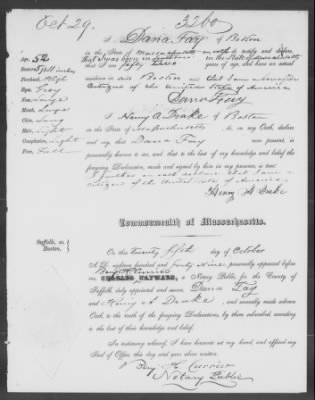 Oct 29.
3260
I Dana Fay of Boston
in the State of Massachusetts on oath testify and declare
that I was born in in the State of Massachusetts
I am fifty two years of age, and have an actual
residence in said Boston and that I am a
Citizen of the United States of America
Dana Fay
Age, 52
Stature, 5 ft
Forehead, High
Eyes, Grey
Nose, Large
Mouth, Large
Chin, Long
Hair, light
Complexion, light
Face, Full
I Henry A. Drake of Boston
in the State of Massachusetts do, on my Oath, declare
and say, that Dana Fay now present, is
personally known to me, and that to the best of my knowledge and belief the
foregoing Declaration, made and signed by him in my presence, is true.
I further on oath declare that I am a
citizen of the United States of America
Henry A Drake
Commonwealth of Massachusetts.
Suffolk, ss.
Boston,
On this Twenty fifth day of October
A.D. eighteen hundred and forty nine personally appeared before
me, Benj. H. Currier CHARLES HAYWARD, a Notary Public for the County of
Suffolk, duly appointed and sworn, Dana Fay
and Henry A Drake and severally made solemn
Oath to the truth of the foregoing Declarations, by them subscribed, according
to the best of their knowledge and belief.
In testimony whereof, I have hereunto set my hand, and affixed my
Seal of Office, this day and year above written.
Benj. H. Currier
Notary Public